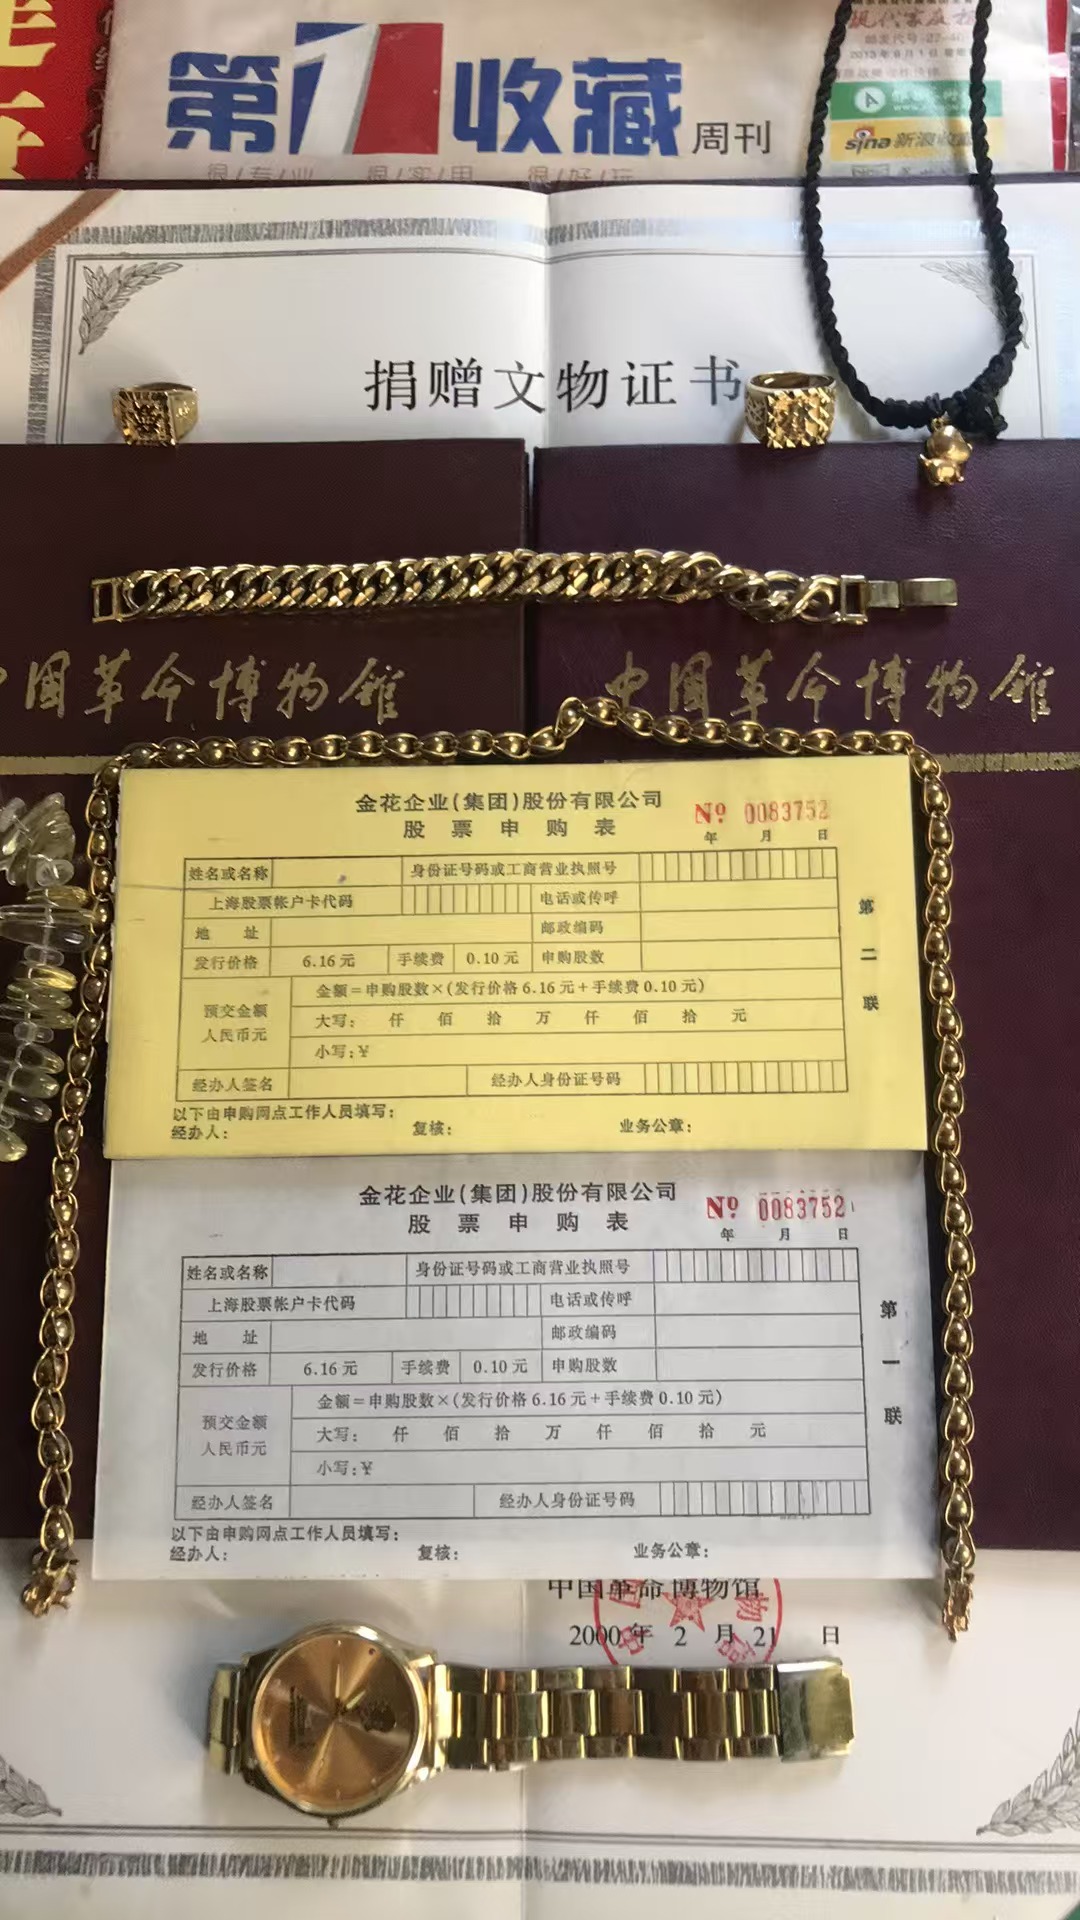 第1收藏周刊
很/专/业 很/实/用 很/好/玩
现代家庭报
邮发代号
sina新浪收藏
捐赠文物证书
中国革命博物馆
中国革命博物馆
金花企业(集团)股份有限公司
股票申购表
Nº 0083752
年 月 日
姓名或名称 身份证号码或工商营业执照号
上海股票帐户卡代码 电话或传呼
地 址 邮政编码
发行价格 6.16元 手续费 0.10元 申购股数
预交金额
人民币元
金额=申购股数×(发行价格6.16元+手续费0.10元)
大写: 仟 佰 拾 万 仟 佰 拾 元
小写:¥
经办人签名 经办人身份证号码
以下由申购网点工作人员填写:
经办人: 复核: 业务公章:
第二联
金花企业(集团)股份有限公司
股票申购表
Nº 0083752
年 月 日
姓名或名称 身份证号码或工商营业执照号
上海股票帐户卡代码 电话或传呼
地 址 邮政编码
发行价格 6.16元 手续费 0.10元 申购股数
预交金额
人民币元
金额=申购股数×(发行价格6.16元+手续费0.10元)
大写: 仟 佰 拾 万 仟 佰 拾 元
小写:¥
经办人签名 经办人身份证号码
以下由申购网点工作人员填写:
经办人: 复核: 业务公章:
第一联
中国革命博物馆
2000年 2 月 21 日